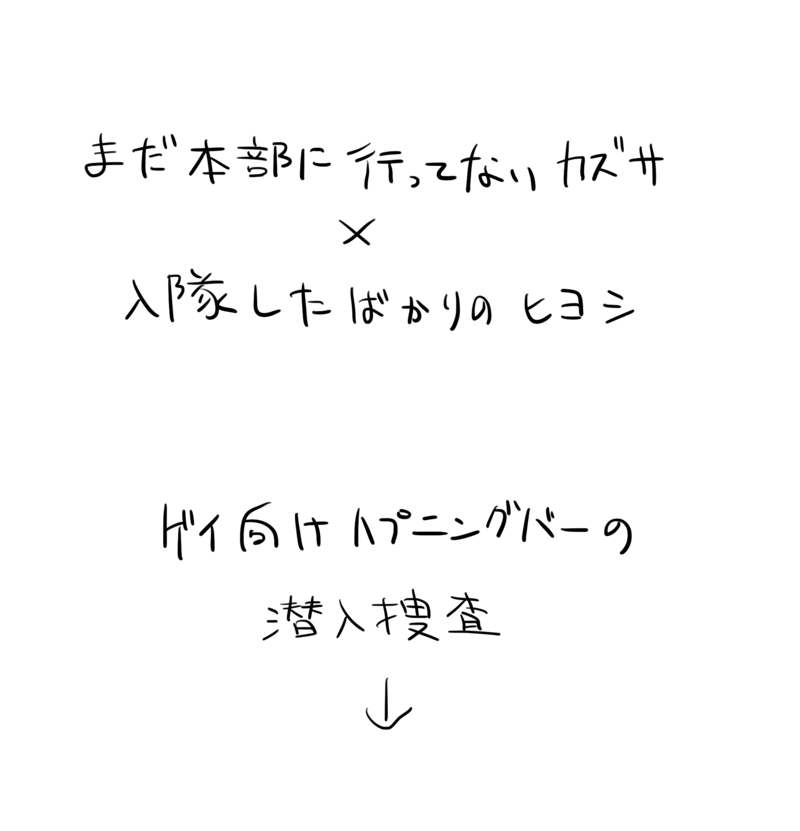 まだ本部に行ってないカズサ
×
入隊したばかりのヒヨシ
ゲイ向けハプニングバーの
潜入捜査
↓